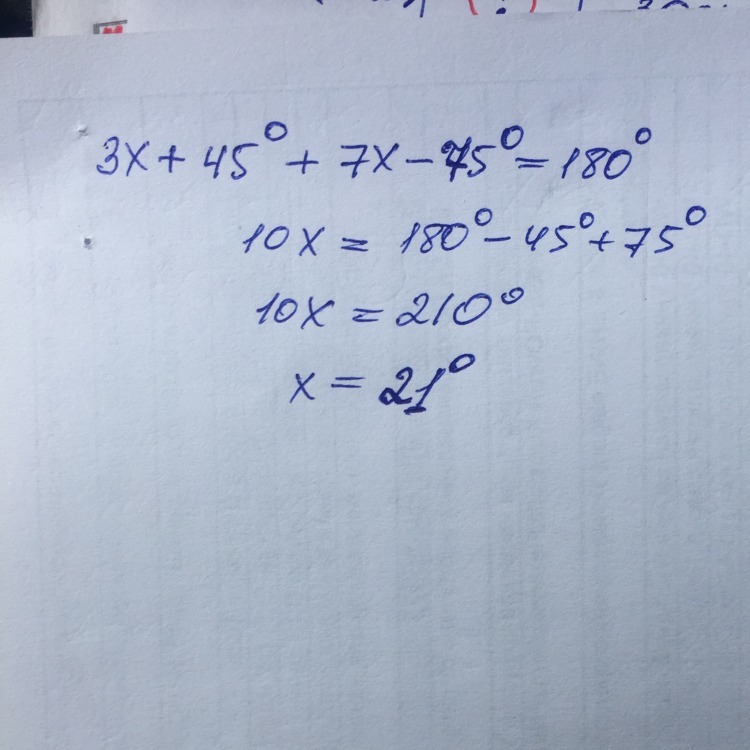 3x + 45° + 7x - 75° = 180°
10x = 180° - 45° + 75°
10x = 210°
x = 21°